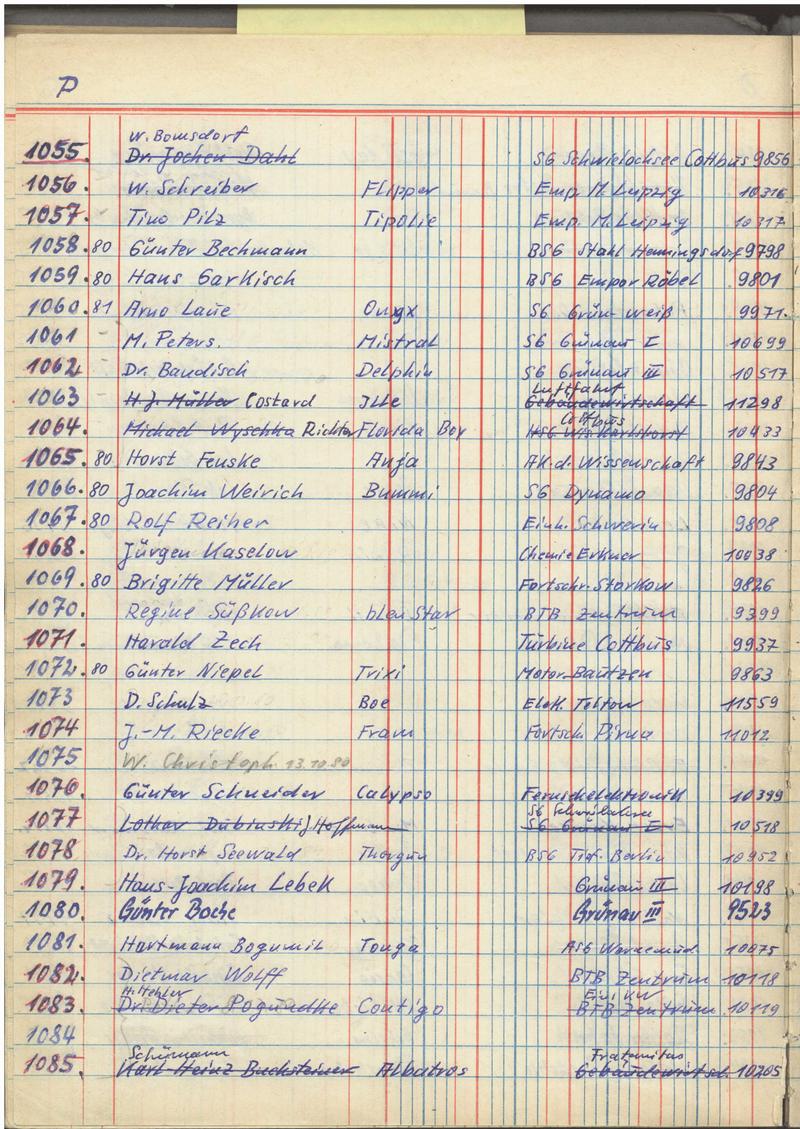 P
W. Bomsdorf
1055. Dr. Jochen Dahl SG Schwielochsee Cottbus 9856
1056. W. Schreiber Flipper Emp. M. Leipzig 10316
1057. Tino Pilz Tipolie Emp. M. Leipzig 10317
1058.80 Günter Bechmann BSG Stahl Henningsdorf 9798
1059.80 Hans Garkisch BSG Empor Röbel 9801
1060.81 Arno Laue Onyx SG Grün-weiß 9971.
1061 M. Peters. Mistral SG Grünau I 10699
1062. Dr. Baudisch Delphin SG Grünau III 10517
Luftfahrt
1063 H.J. Müller Costard Ille Gebäudewirtschaft 11298
Cottbus
1064. Michael Wyschka Richter Florida Boy HSG Wis Karlshorst 10433
1065.80 Horst Fenske Anja AK.d. Wissenschaft 9843
1066.80 Joachim Weirich Bummi SG Dynamo 9804
1067.80 Rolf Reiher Einh. Schwerin 9808
1068. Jürgen Kaselow Chemie Erkner 10038
1069.80 Brigitte Müller Fortschr. Storkow 9826
1070. Regine Süßkow blen Star BTB Zentrum 9399
1071. Harald Zech Turbine Cottbus 9937
1072.80 Günter Niepel Trixi Motor-Bautzen 9863
1073 D. Schulz Boe Elek. Teltow 11559
1074 J.-M. Riecke Fram Fortsch. Pirna 11012
1075 W. Christoph 13.10.80
1076. Günter Schneider Calypso Fernsehelektronik 10399
SG
1077 Lothar Dubinski J. Hoffmann SG Grünau I 10518
1078. Dr. Horst Seewald Thorgun BSG Tief. Berlin 10952
1079. Hans-Joachim Lebek Grünau III 10198
1080. Günter Boche Grünau III 9523
1081. Hartmann Bogumil Tonga ASG Warnemünd. 10075
1082. Dietmar Wolff BTB Zentrum 10118
H. Mehler Eini KW
1083. Dr. Dieter Pogundke Contigo BTB Zentrum 10119
1084
Schürmann Fraternitas
1085. Karl-Heinz Bucksteiner Albatros Gebäudewirtsch. 10205